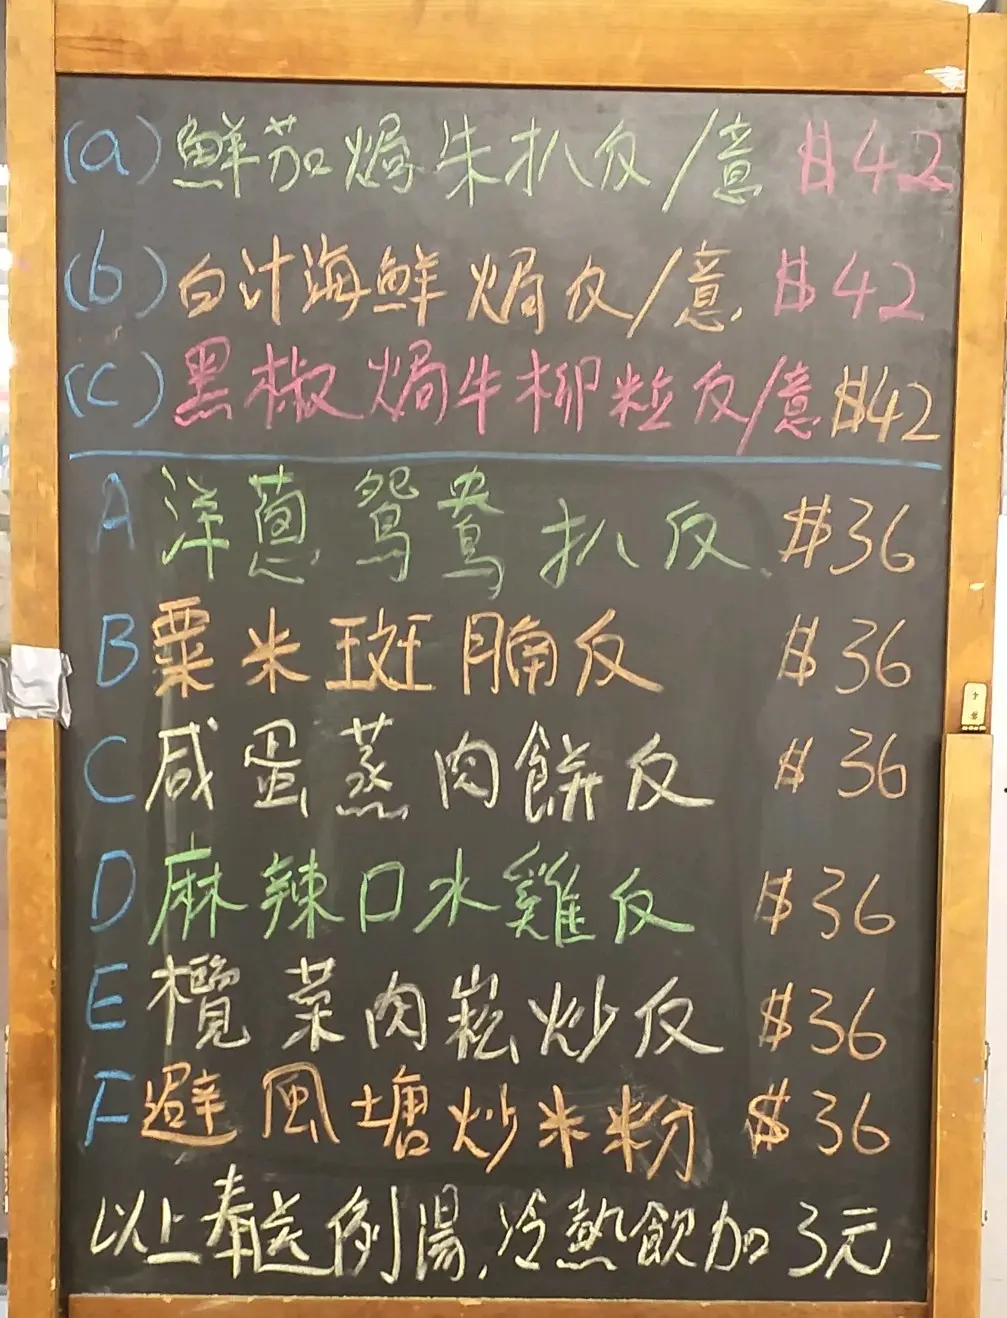 (a) 鮮茄焗朱扒反/意 $42
(b) 白汁海鮮焗反/意 $42
(c) 黑椒焗牛柳粒反/意 $42
A 洋蔥鴛鴦扒反 $36
B 粟米斑腩反 $36
C 咸蛋蒸肉餅反 $36
D 麻辣口水雞反 $36
E 欖菜肉崧炒反 $36
F 避風塘炒米粉 $36
以上奉送例湯,冷熱飲加3元